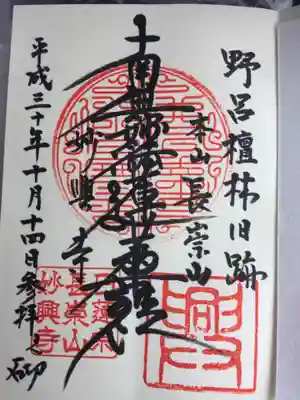 野呂檀林旧跡
本山 長崇山
南無妙法蓮華経
妙興寺
平成三十年十月十四日参拝之砌
日蓮宗
長崇山
妙興寺